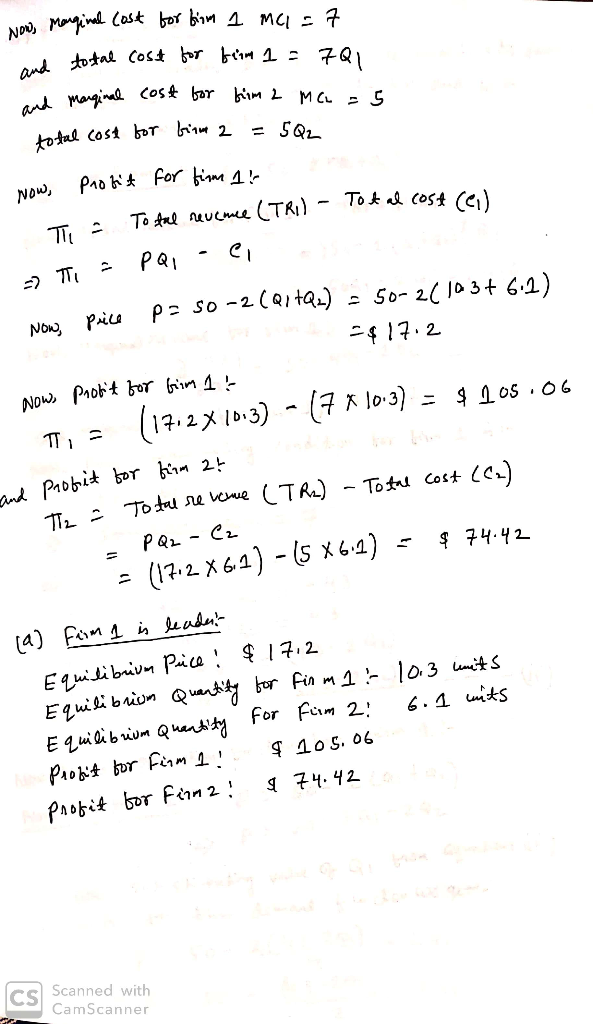 Now, Marginal Cost for firm 1 MC1 = 7
and total cost for firm 1 = 7Q1
and Marginal cost for firm 2 MC2 = 5
total cost for firm 2 = 5Q2
Now, Profit For firm 1:-
π1 = Total revenue (TR1) - Total cost (C1)
=> π1 = PQ1 - C1
Now, Price P = 50 - 2(Q1+Q2) = 50 - 2(10.3 + 6.1)
= $17.2
Now, Profit for firm 1:-
π1 = (17.2 X 10.3) - (7 X 10.3) = $ 105.06
and Profit for firm 2:-
π2 = Total revenue (TR2) - Total cost (C2)
= PQ2 - C2
= (17.2 X 6.1) - (5 X 6.1) = $ 74.42
(a) Firm 1 is leader:-
Equilibrium Price: $ 17.2
Equilibrium Quantity for Firm 1:- 10.3 units
Equilibrium Quantity For Firm 2: 6.1 units
Profit for Firm 1: $ 105.06
Profit for Firm 2: $ 74.42
CS Scanned with
CamScanner